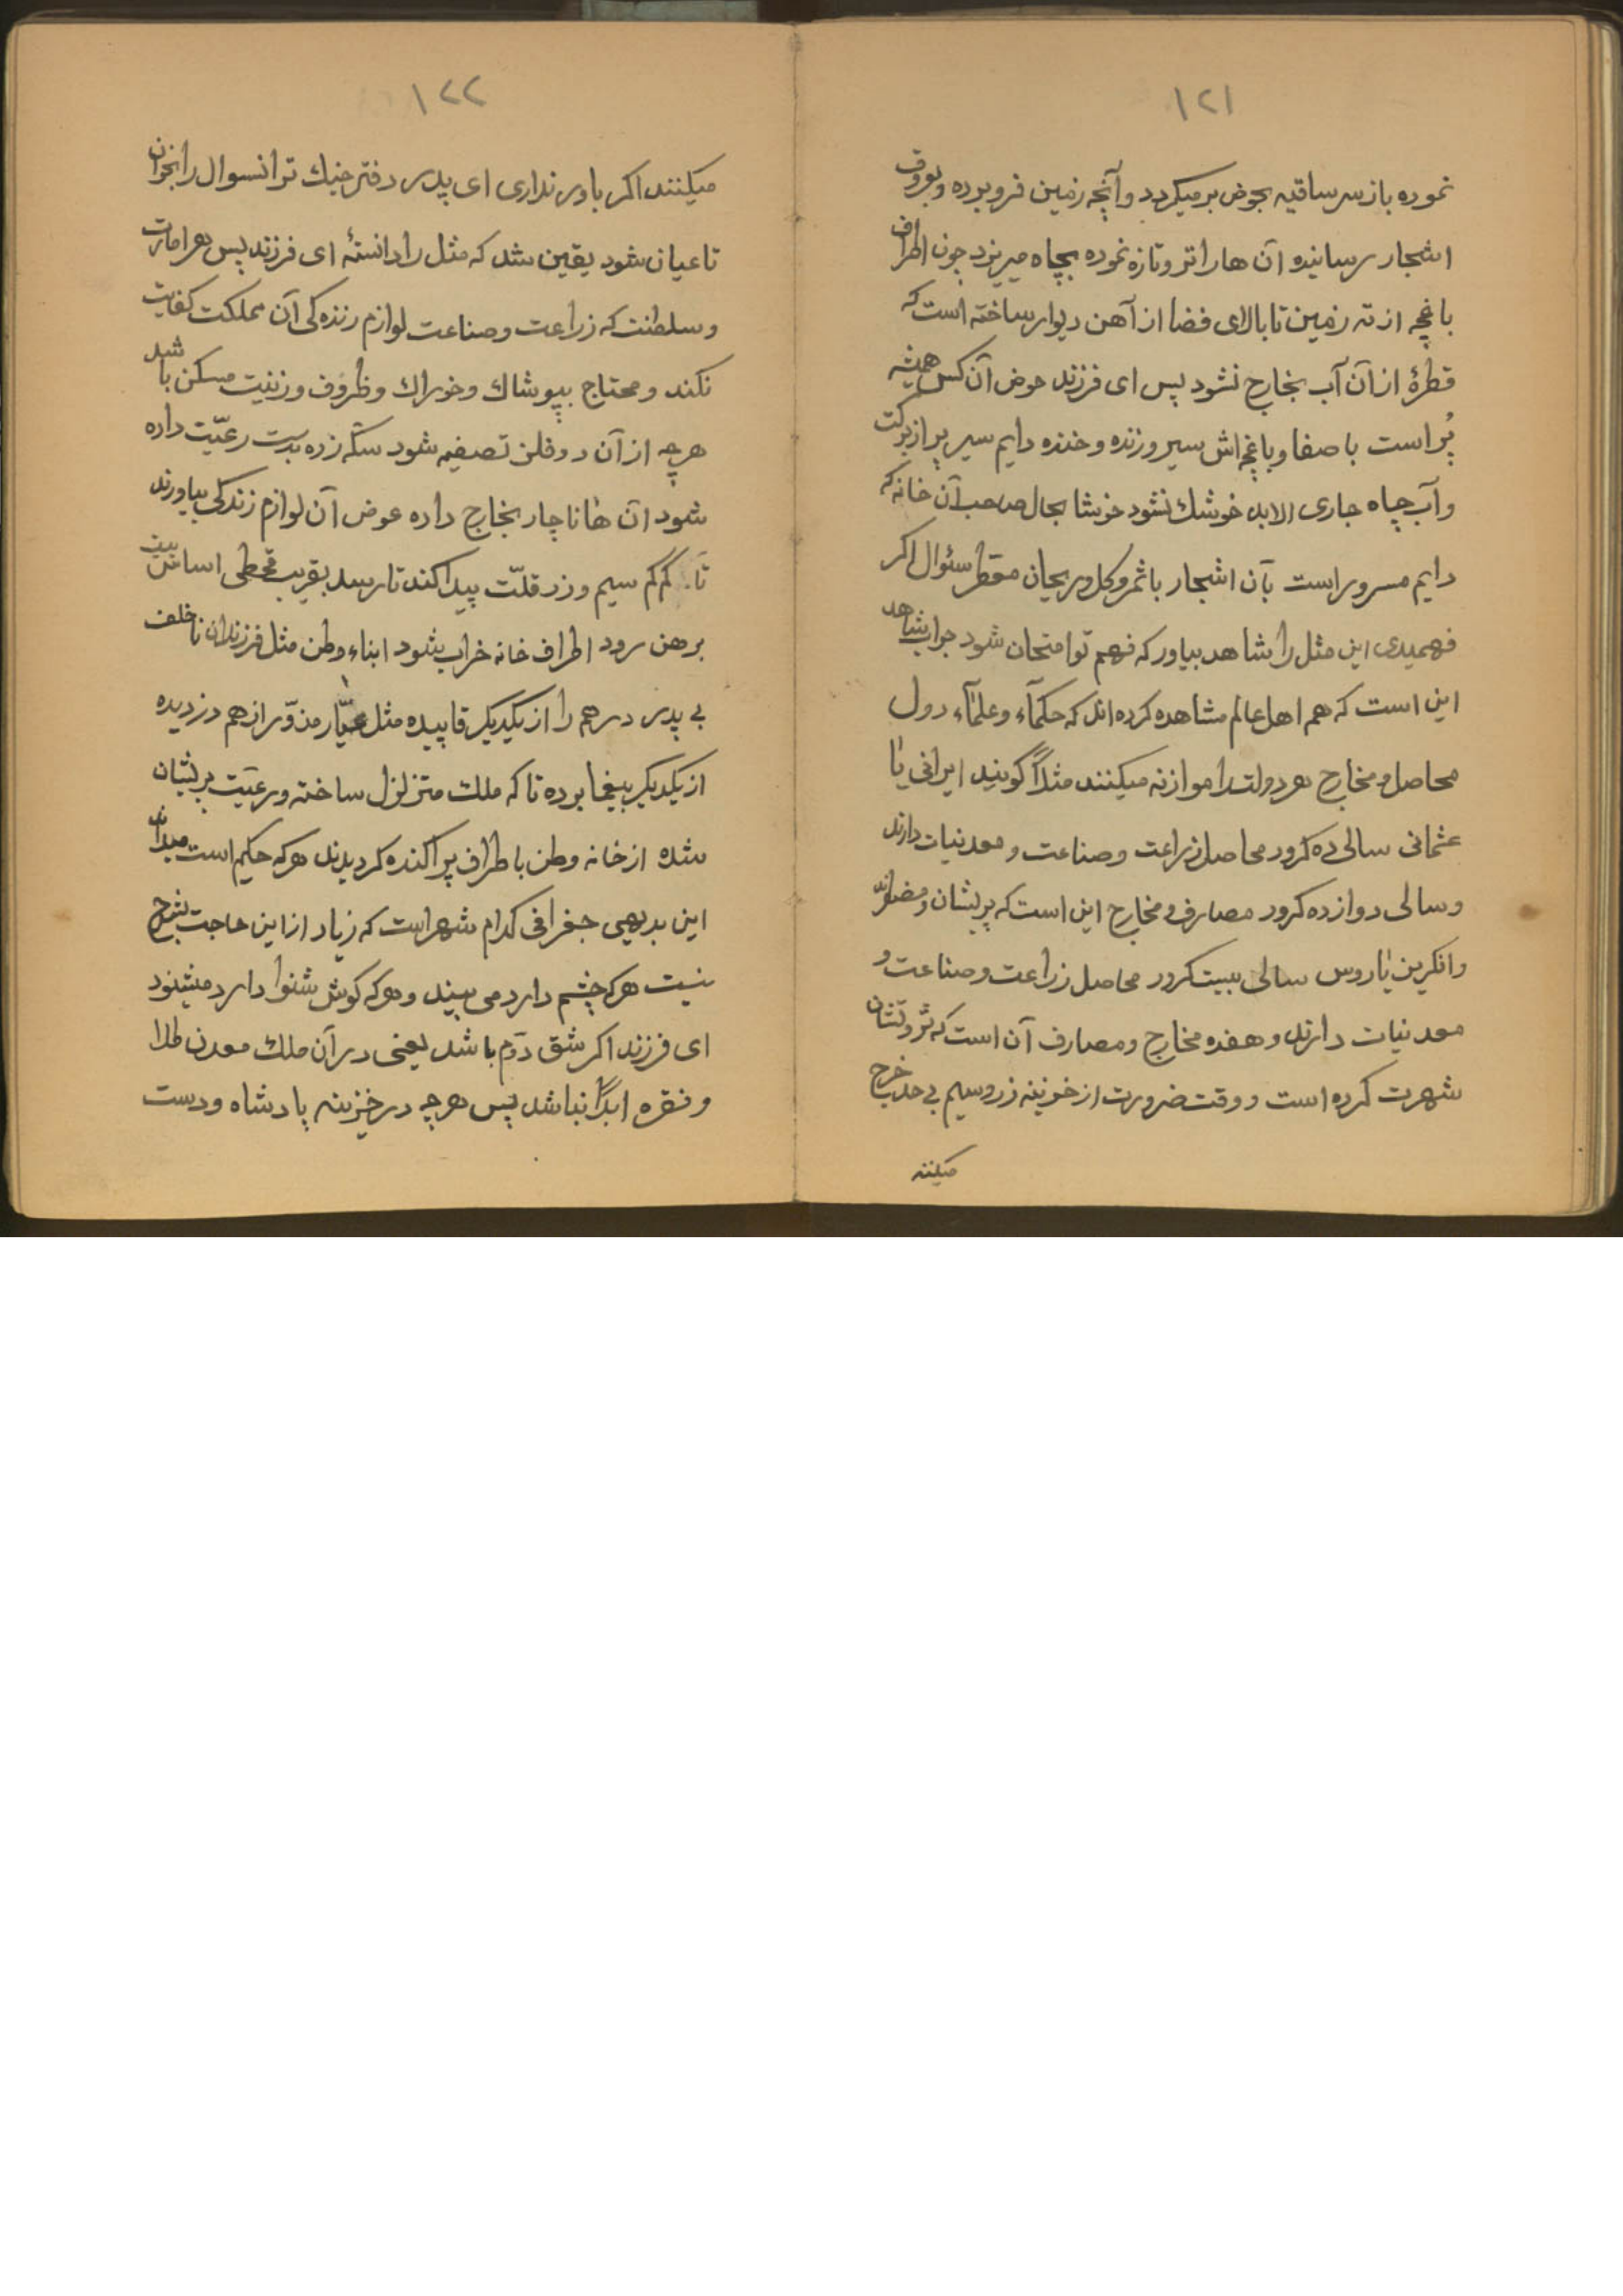 ۱۲۱
نموده باز سر ساقیه بحوض بر میکردد وآنچه زمین فرو برده وبعروق
اشجار رسانیده آن ها را تر وتازه نموده بچاه میریزد چون اطراف
باغچه از ته زمین تا بالای فضا از آهن دیوار ساخته است که
قطرهٔ از آن آب بخارج نشود پس ای فرزند حوض آن کس همیشه
پُر است با صفا وباغچه اش سیر وزنده وخنده دایم سیر پر از برکت
وآب چاه جاری الابد خوشك نشود خوشا بحال صاحب آن خانه که
دایم مسرور است بآن اشجار با ثمر وکل وریحان معطر سئوال اکر
فهمیدی این مثل را شاهد بیاور که فهم تو امتحان شود جواب شاهد
این است که هم اهل عالم مشاهده کرده اند که حکمآء وعلمآء دول
محاصل ومخارج هر دولت را موازنه میکنند مثلاً گویند ایرانی یا
عثمانی سالی ده کرور محاصل زراعت وصناعت و معدنیات دارند
وسالی دوازده کرور مصارف ومخارج این است که پریشان و
وانکریز یا روس سالی بیست کرور محاصل زراعت وصناعت و
معدنیات دارند و هفده مخارج ومصارف آن است که ثروتشان
شهرت کرده است و وقت ضرورت از خزینه زر وسیم بی حد خرج
میکنند
۱۲۲
میکنند اکر باور نداری ای پدر دفتر جنك ترانسوال را بخوان
تا عیان شود یقین شد که مثل را دانستهٔ ای فرزند پس هر امارت
وسلطنت که زراعت وصناعت لوازم زنده کی آن مملکت کفایت
نکند ومحتاج بپوشاك وخوراك وظروف وزینت مسکن باشد
هرچه از آن دو فلز تصفیه شود سکه زده بدست رعیّت داده
شود آن ها ناچار بخارج داده عوض آن لوازم زندکی بیاورند
تا کم کم سیم وزر قلّت پیدا کند تا رسد بقریب قحطی اساس بیت
برهن رود اطراف خانه خراب شود ابناء وطن مثل فرزندان ناخلف
بی پدر درهم را از یکدیکر قاپیده مثل عیّار مزوّر از هم دزدیده
از یکدیکر بیغما برده تا که ملك متزلزل ساخته ورعیّت پریشان
شده از خانه وطن باطراف پراکنده کردیدند هر که حکیم است میداند
این بدیهی جغرافی کدام شهر است که زیاد از این حاجت بشرح
نیست هر که چشم دارد می بیند و هر که کوش شنوا دارد میشنود
ای فرزند اکر شق دوّم باشد یعنی در آن ملك معدن طلا
ونقره ابداً نباشد پس هرچه در خزینه پادشاه ودست